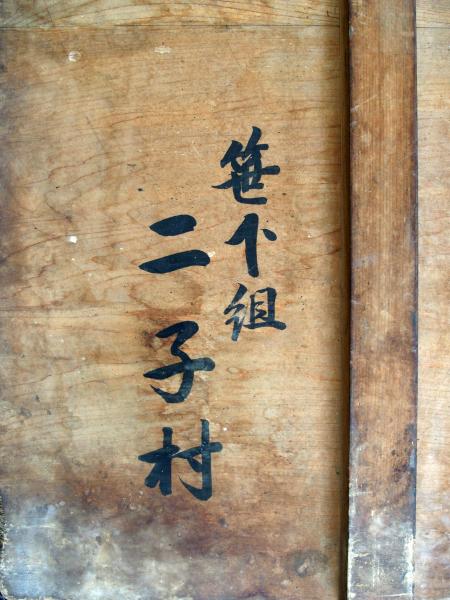 笹下組
二子村